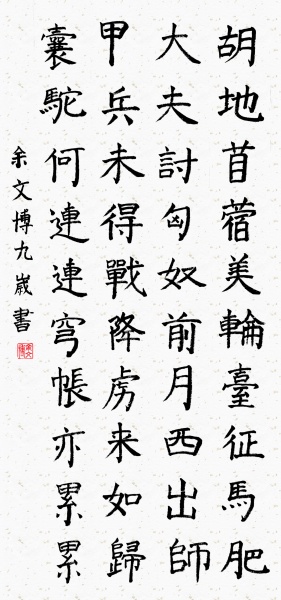 胡地苜蓿美輪臺征馬肥
大夫討匈奴前月西出師
甲兵未得戰降虏来如歸
囊駝何連連穹帳亦累累
余文博九歲書